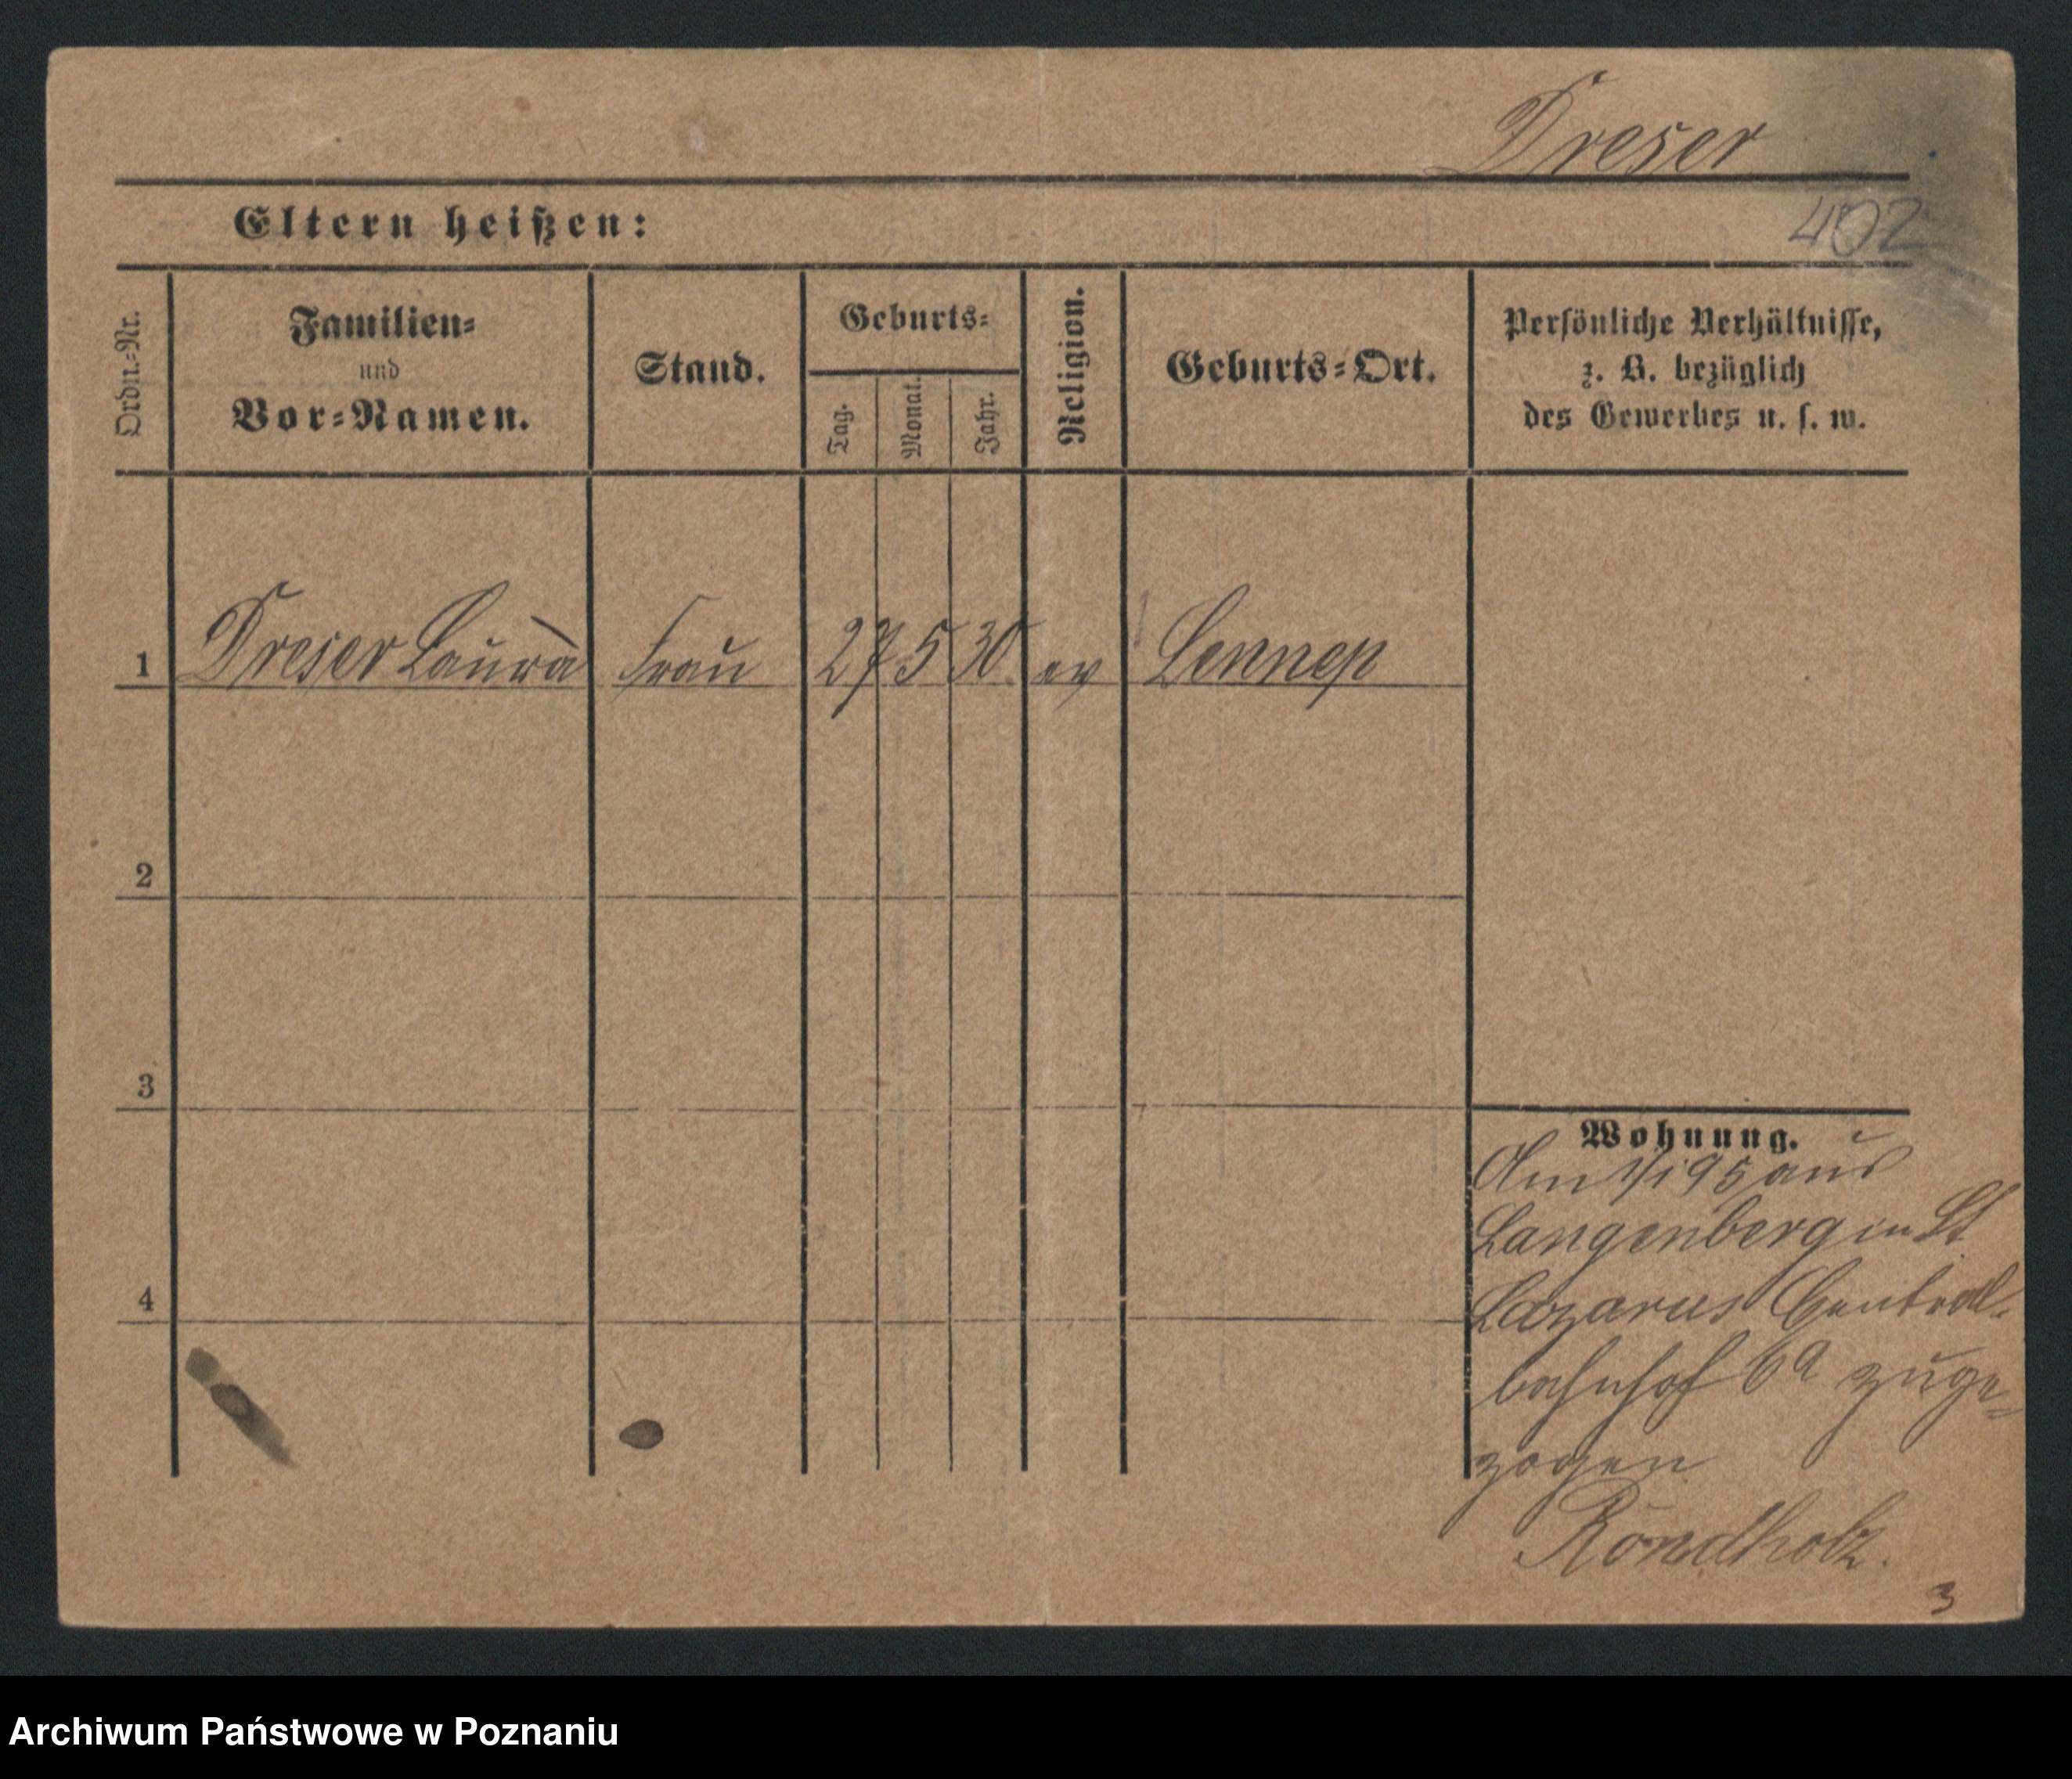 Dreser
Eltern heißen:
402
Ordn.=Nr.
Familien=
und
Vor=Namen.
Stand.
Geburts=
Tag.
Monat.
Jahr.
Religion.
Geburts=Ort.
Persönliche Verhältnisse,
z. B. bezüglich
des Gewerbes u. s. w.
1 Dreser Laura Frau 27 5 30 ev Lennep
2
3
Wohnung.
Am 1/1 95 aus
Langenberg in St
Lazarus Central-
4
bahnhof 6a zuge=
zogen
Rondholz.
3
Archiwum Państwowe w Poznaniu